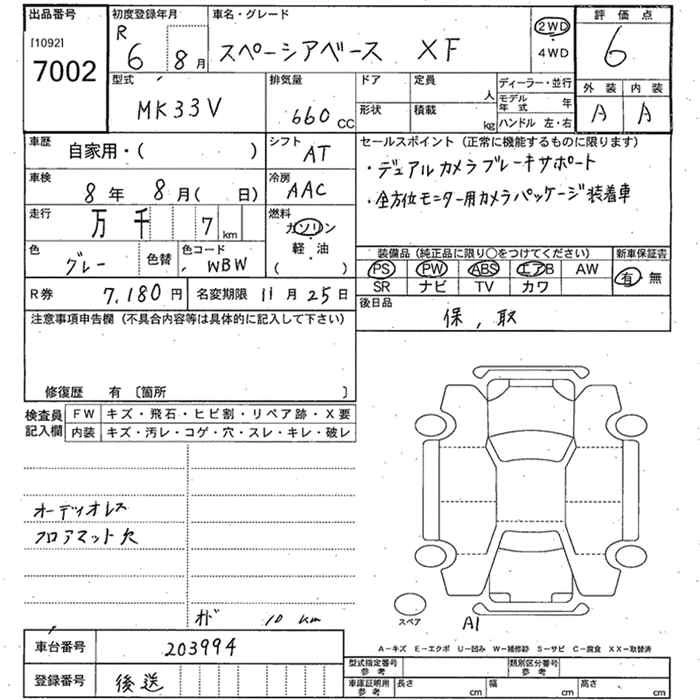 出品番号
[1092]
7002
初度登録年月
R 6 8 月
車名・グレード
スペーシアベース XF
2WD
4WD
評価点
6
外装 内装
A A
型式
MK33V
排気量
660 CC
ドア
定員
人
形状
積載
kg
ディーラー・並行
モデル年式 年
ハンドル 左・右
車歴
自家用・( )
車検
8 年 8 月( 日)
走行
万 千 7 km
色
グレー
色替
色コード
WBW
シフト
AT
冷房
AAC
燃料
ガソリン
軽・油
( )
セールスポイント(正常に機能するものに限ります)
・デュアルカメラブレーキサポート
・全方位モニター用カメラパッケージ装着車
装備品(純正品に限り〇をつけてください)
新車保証書
PS PW ABS エアB AW
SR ナビ TV カワ
有・無
R券
7,180 円
名変期限 11 月 25 日
後日品
保,取
注意事項申告欄(不具合内容等は具体的に記入して下さい)
修復歴 有〔箇所 〕
検査員記入欄
FW キズ・飛石・ヒビ割・リペア跡・X要
内装 キズ・汚レ・コゲ・穴・スレ・キレ・破レ
オーディオレス
フロアマット欠
オド 10 km
スペア
A1
A−キズ E−エクボ U−凹み W−補修跡 S−サビ C−腐食 XX−取替済
車台番号
203994
登録番号
後送
型式指定番号参考
類別区分番号参考
車庫証明用参考
長さ cm
幅 cm
高さ cm